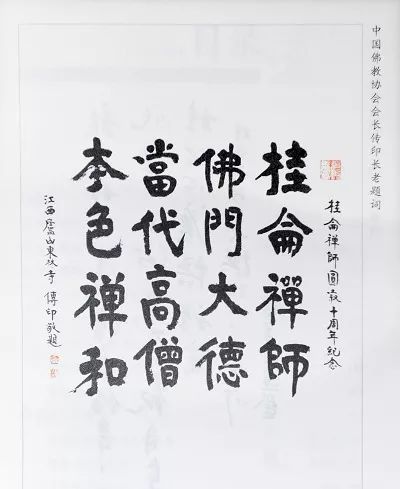 中国佛教协会会长传印长老题词
桂侖禪師圓寂十周年紀念
桂侖禪師
佛門大德
當代高僧
本色禪和
江西廬山東林寺 傳印敬題